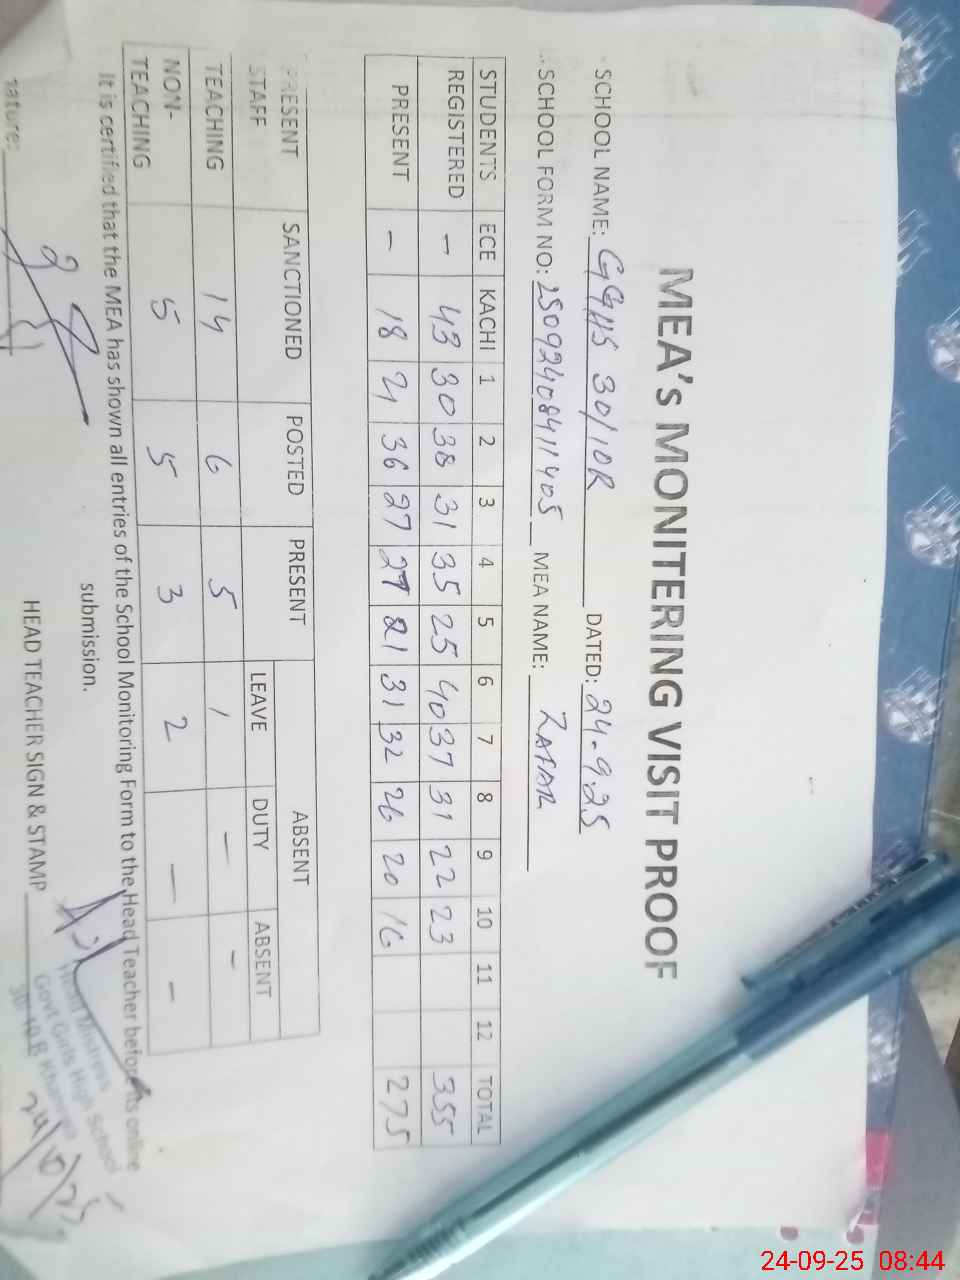 MEA's MONITERING VISIT PROOF
SCHOOL NAME: GGHS 30/10R DATED: 24.9.25
SCHOOL FORM NO: 25092408411405 MEA NAME: ZAFAR
STUDENTS ECE KACHI 1 2 3 4 5 6 7 8 9 10 11 12 TOTAL
REGISTERED - 43 30 38 31 35 25 40 37 31 22 23 355
PRESENT - 18 21 36 27 27 21 31 32 26 20 16 275
PRESENT STAFF SANCTIONED POSTED PRESENT ABSENT
LEAVE DUTY ABSENT
TEACHING 14 6 5 1 - -
NON-TEACHING 5 5 3 2 - -
It is certified that the MEA has shown all entries of the School Monitoring Form to the Head Teacher before its online
submission.
nature:
HEAD TEACHER SIGN & STAMP
Head Mistress
Govt Girls High School
24-09-25 08:44